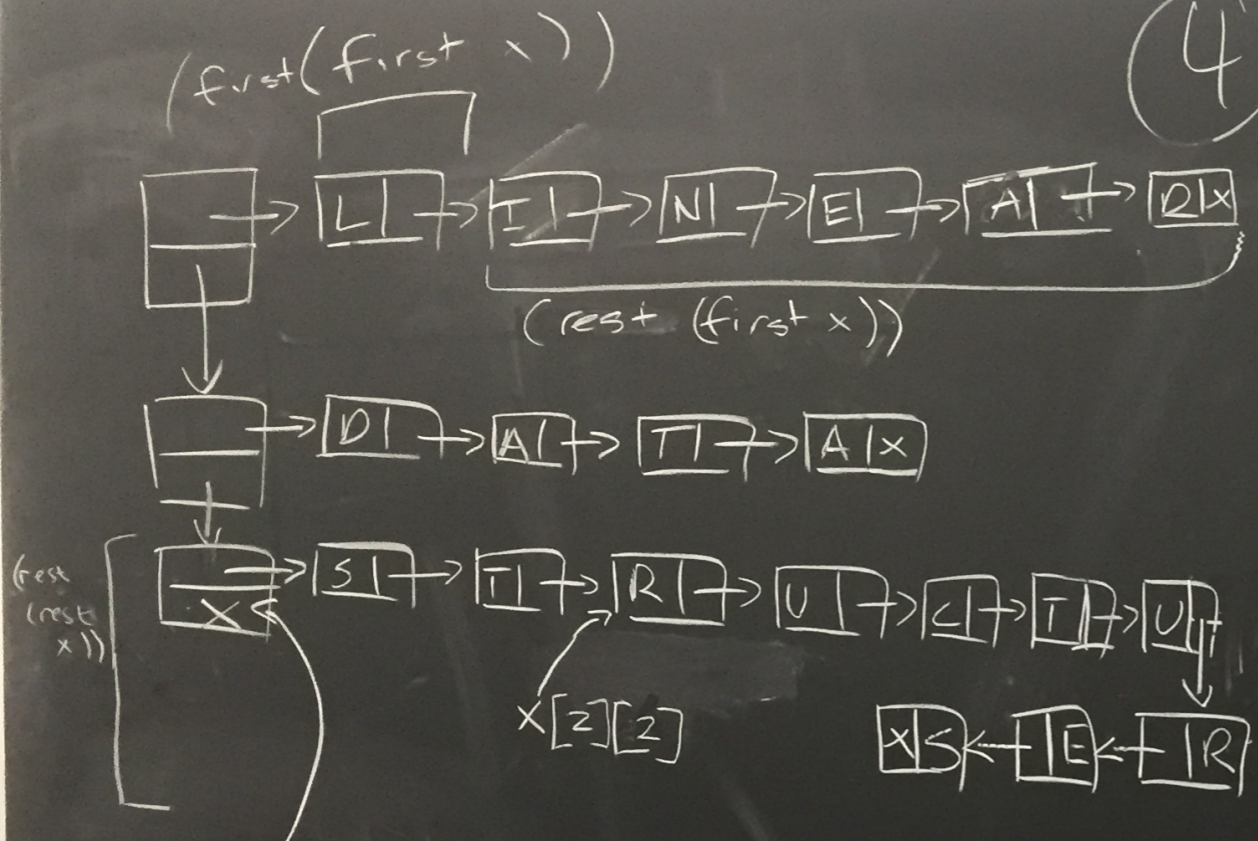 (first(first x))
4
L I N E A R x
(rest (first x))
D A T A x
S T R U C T U
(rest
(rest
x))
X
x[2][2]
x S E R